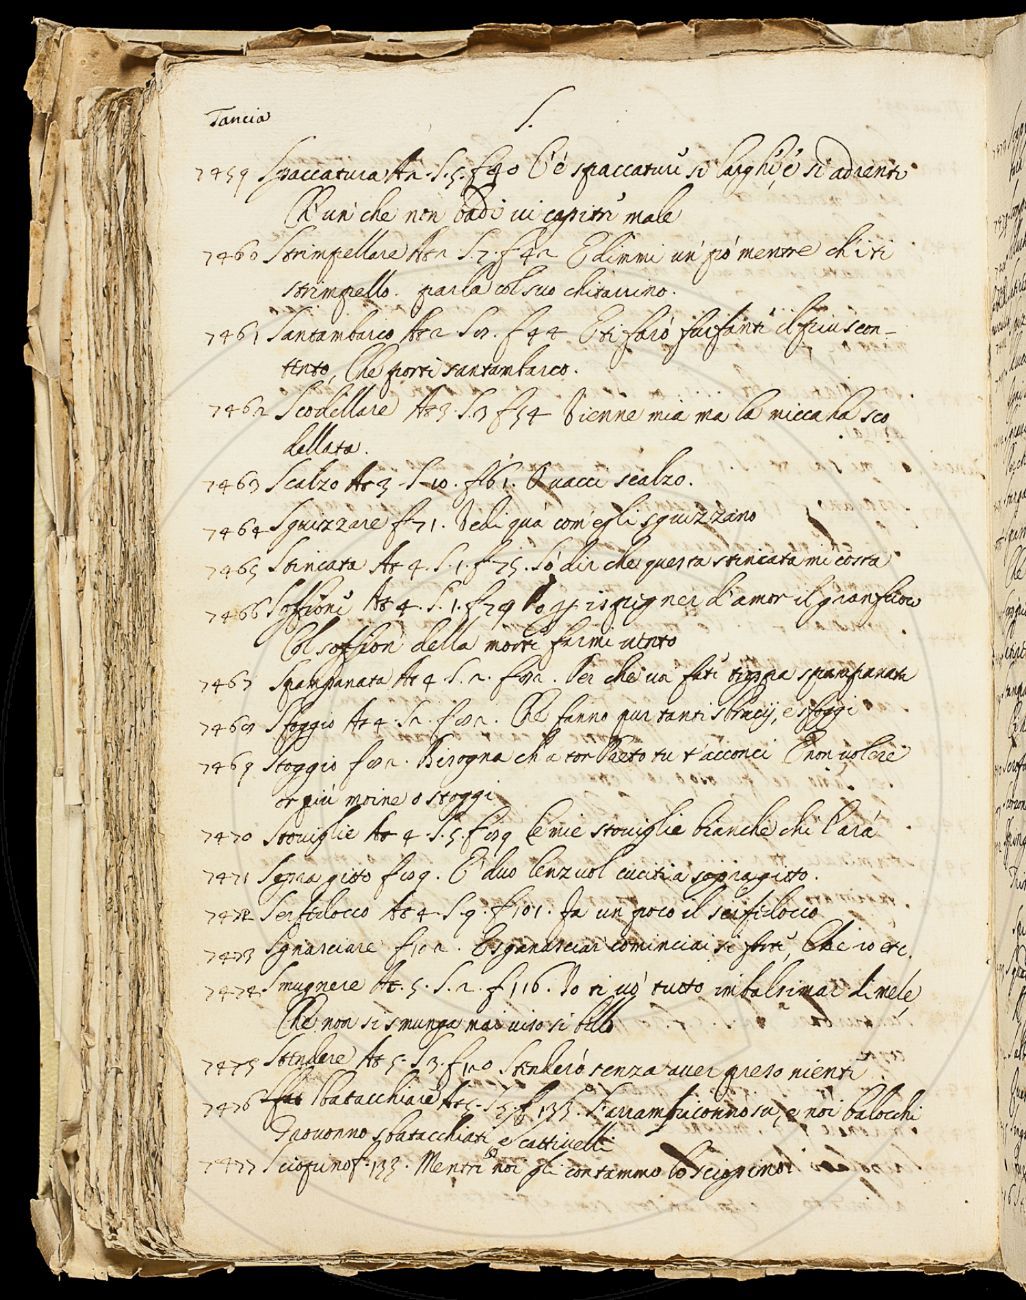 Tancia
S.
7459 Spaccatura At 2. S. 5. f 40 C'è spaccature si larghe, e si adrenti
Ch'un' che non badi vi capitri male
7460 Strimpellare At 2 S. 7. f 42 E dimmi un' pò mentre ch'i ti
strimpello. parla col suo chitarrino.
7461 Santambarco At 2 f 44 E ti farò il piu scon-
tento, Che porti santambarco.
7462 Scodellare At 3 S. 3 f 54 Vienne mia ma la micca ha sco
dellata.
7463 Scalzo At 3 S. 10. f 61. Vuacci scalzo.
7464 Sguizzare f 71. Vedi quà com'egli sguizzano
7465 Stincata At 4. S. 1. f 75. Sò dir che questa stincata mi costa
7466 Soffione At 4. S. 1. f 79 d'amor il gran fuoco
Col soffion della morte farmi vento
7467 Spampanata At 4 S. 2. Per che va fare spampanate
7468 Sfoggio At 4. Che fanno pur tanti e sfoggi
7469 Stoggio Bisogna ch'a tor Paeto tu t'acconci E non volere
or piu moine o stoggi
7470 Stoviglie At 4 S. 5 Le mie stoviglie bianche chi l'arà
7471 Sopra gitto E duo lenzuol cuciti a sopragitto.
7472 Serfedocco At 4. S. 9. f 101. Fa un poco il serfedocco
7473 Sgnarciare cominciai si forte, Che io etc.
7474 Smugnere At. 5. S. 2. f 116. Io ti vò tutto imbalsimar di mele
Che non si smunga mai viso si bello
7475 Stendere At 5. S 3. f 120 Stenderò senza aver preso niente
7476 Sbatacchiare At 5. S 5. f 133. S'arrampiconno su, e noi balocchi
Trovonno sbatacchiati, e cattivelli
7477 Sciopino f. 133. Mentre noi gli contammo lo sciopino